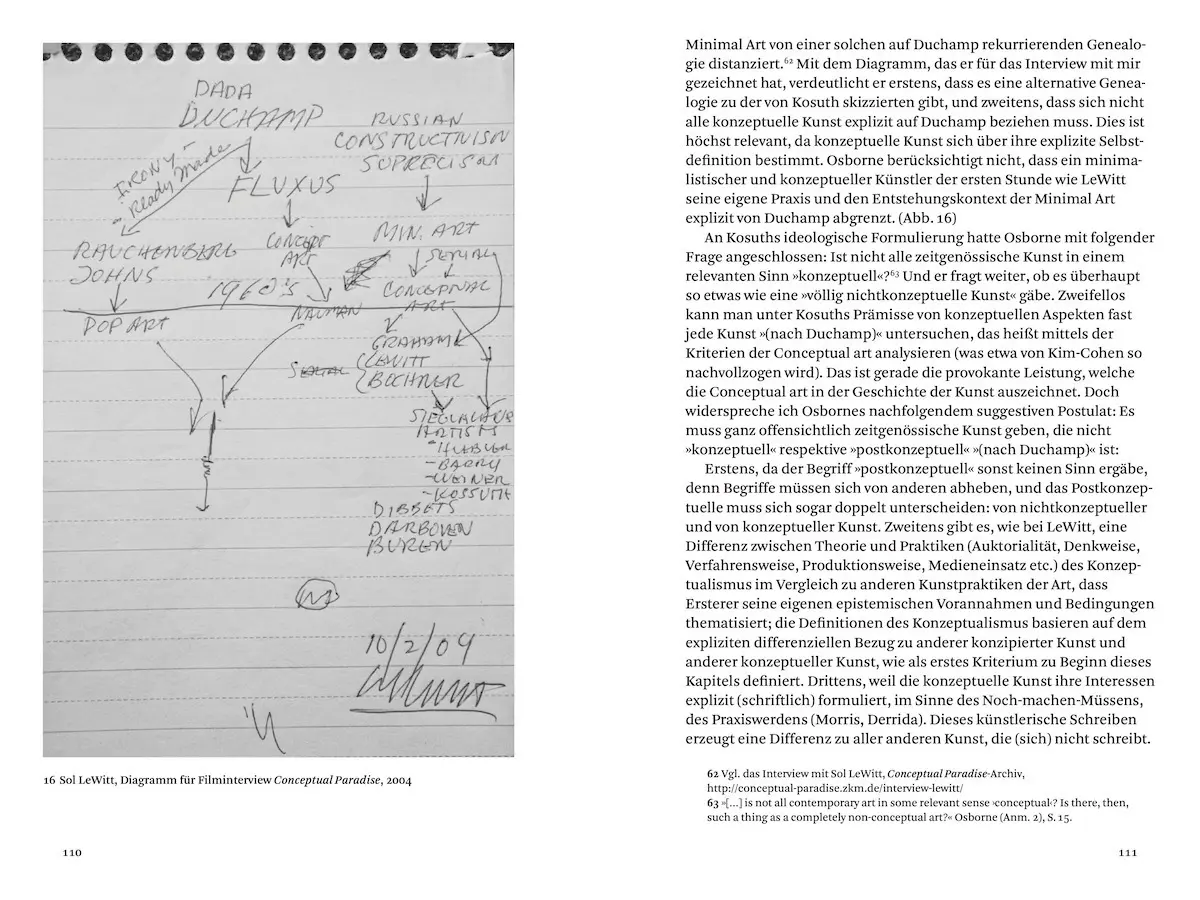 DADA
DUCHAMP
IRONY –
– Ready Made
FLUXUS
RUSSIAN
CONSTRUCTIVISM
SUPRECISM
RAUCHENBERG
JOHNS
CONCEPT
ART
MIN. ART
SERIAL
CONCEPTUAL
ART
1960's
POP ART
NAUMAN
GRAHAM
SERIAL
LEWITT
BOCHNER
SIEGLAUB
ARTISTS
- HUEBLER
- BARRY
- WEINER
- KOSSUTH
DIBBETS
DARBOVEN
BUREN
10/2/04
16 Sol LeWitt, Diagramm für Filminterview Conceptual Paradise, 2004
110
Minimal Art von einer solchen auf Duchamp rekurrierenden Genealo-
gie distanziert.62 Mit dem Diagramm, das er für das Interview mit mir
gezeichnet hat, verdeutlicht er erstens, dass es eine alternative Genea-
logie zu der von Kosuth skizzierten gibt, und zweitens, dass sich nicht
alle konzeptuelle Kunst explizit auf Duchamp beziehen muss. Dies ist
höchst relevant, da konzeptuelle Kunst sich über ihre explizite Selbst-
definition bestimmt. Osborne berücksichtigt nicht, dass ein minima-
listischer und konzeptueller Künstler der ersten Stunde wie LeWitt
seine eigene Praxis und den Entstehungskontext der Minimal Art
explizit von Duchamp abgrenzt. (Abb. 16)
An Kosuths ideologische Formulierung hatte Osborne mit folgender
Frage angeschlossen: Ist nicht alle zeitgenössische Kunst in einem
relevanten Sinn »konzeptuell«?63 Und er fragt weiter, ob es überhaupt
so etwas wie eine »völlig nichtkonzeptuelle Kunst« gäbe. Zweifellos
kann man unter Kosuths Prämisse von konzeptuellen Aspekten fast
jede Kunst »(nach Duchamp)« untersuchen, das heißt mittels der
Kriterien der Conceptual art analysieren (was etwa von Kim-Cohen so
nachvollzogen wird). Das ist gerade die provokante Leistung, welche
die Conceptual art in der Geschichte der Kunst auszeichnet. Doch
widerspreche ich Osbornes nachfolgendem suggestiven Postulat: Es
muss ganz offensichtlich zeitgenössische Kunst geben, die nicht
»konzeptuell« respektive »postkonzeptuell« »(nach Duchamp)« ist:
Erstens, da der Begriff »postkonzeptuell« sonst keinen Sinn ergäbe,
denn Begriffe müssen sich von anderen abheben, und das Postkonzep-
tuelle muss sich sogar doppelt unterscheiden: von nichtkonzeptueller
und von konzeptueller Kunst. Zweitens gibt es, wie bei LeWitt, eine
Differenz zwischen Theorie und Praktiken (Auktorialität, Denkweise,
Verfahrensweise, Produktionsweise, Medieneinsatz etc.) des Konzep-
tualismus im Vergleich zu anderen Kunstpraktiken der Art, dass
Ersterer seine eigenen epistemischen Vorannahmen und Bedingungen
thematisiert; die Definitionen des Konzeptualismus basieren auf dem
expliziten differenziellen Bezug zu anderer konzipierter Kunst und
anderer konzeptueller Kunst, wie als erstes Kriterium zu Beginn dieses
Kapitels definiert. Drittens, weil die konzeptuelle Kunst ihre Interessen
explizit (schriftlich) formuliert, im Sinne des Noch-machen-Müssens,
des Praxiswerdens (Morris, Derrida). Dieses künstlerische Schreiben
erzeugt eine Differenz zu aller anderen Kunst, die (sich) nicht schreibt.
62 Vgl. das Interview mit Sol LeWitt, Conceptual Paradise-Archiv,
http://conceptual-paradise.zkm.de/interview-lewitt/
63 »[…] is not all contemporary art in some relevant sense ›conceptual‹? Is there, then,
such a thing as a completely non-conceptual art?« Osborne (Anm. 2), S. 15.
111